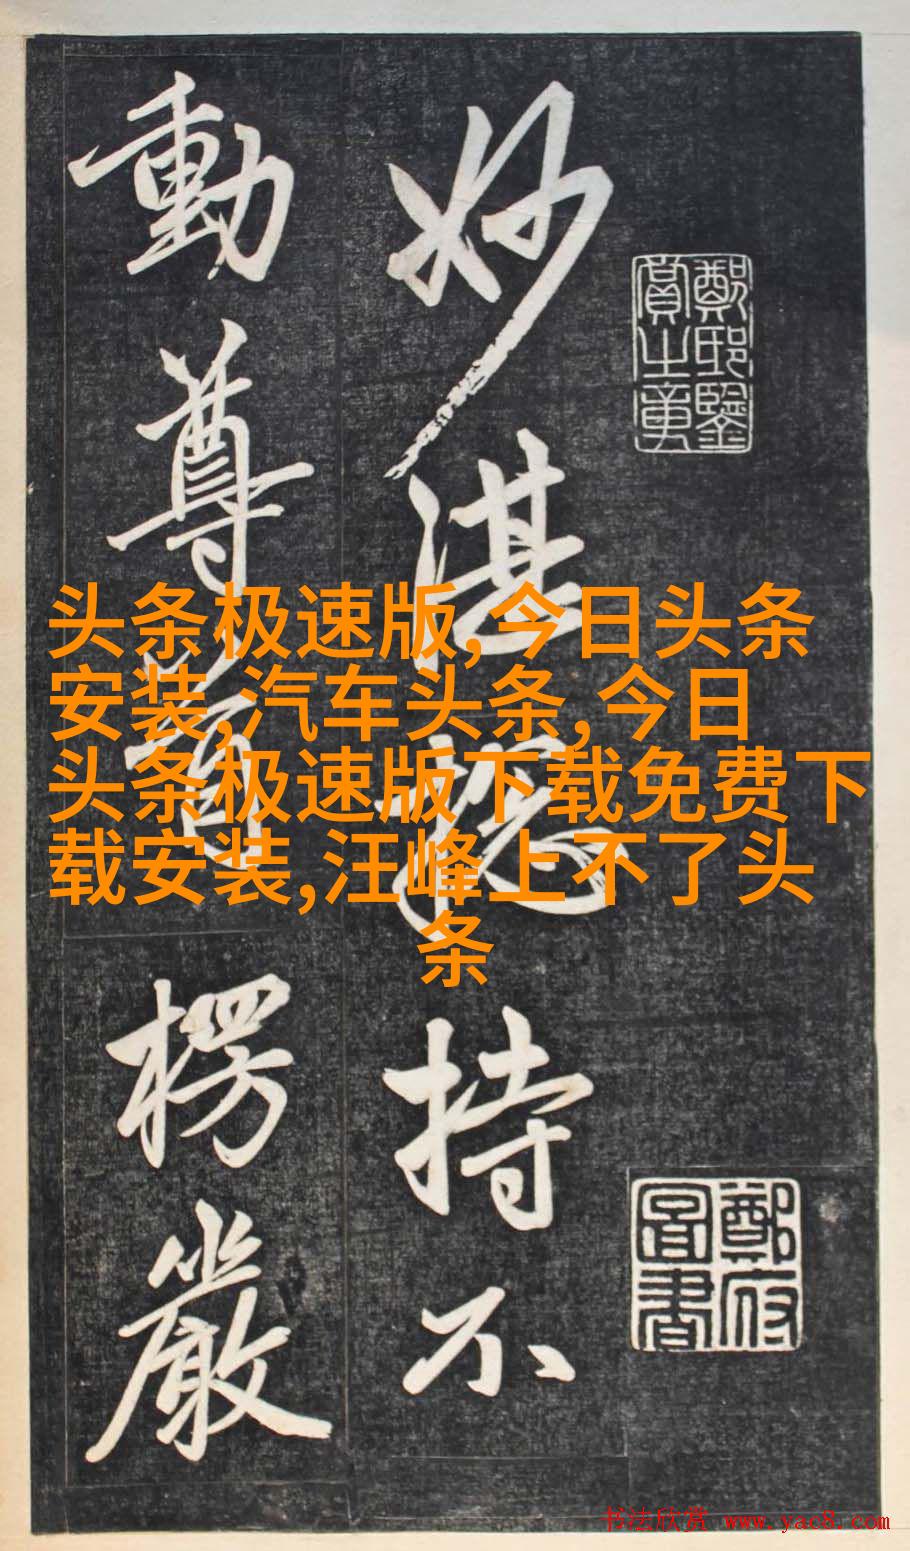 妙湛揔持不
動尊首楞嚴
鄭邸鑒賞之章
鄭府圖書
头条极速版,今日头条
安装,汽车头条,今日
头条极速版下载免费下
载安装,汪峰上不了头
条
书法欣赏 www.yac8.com